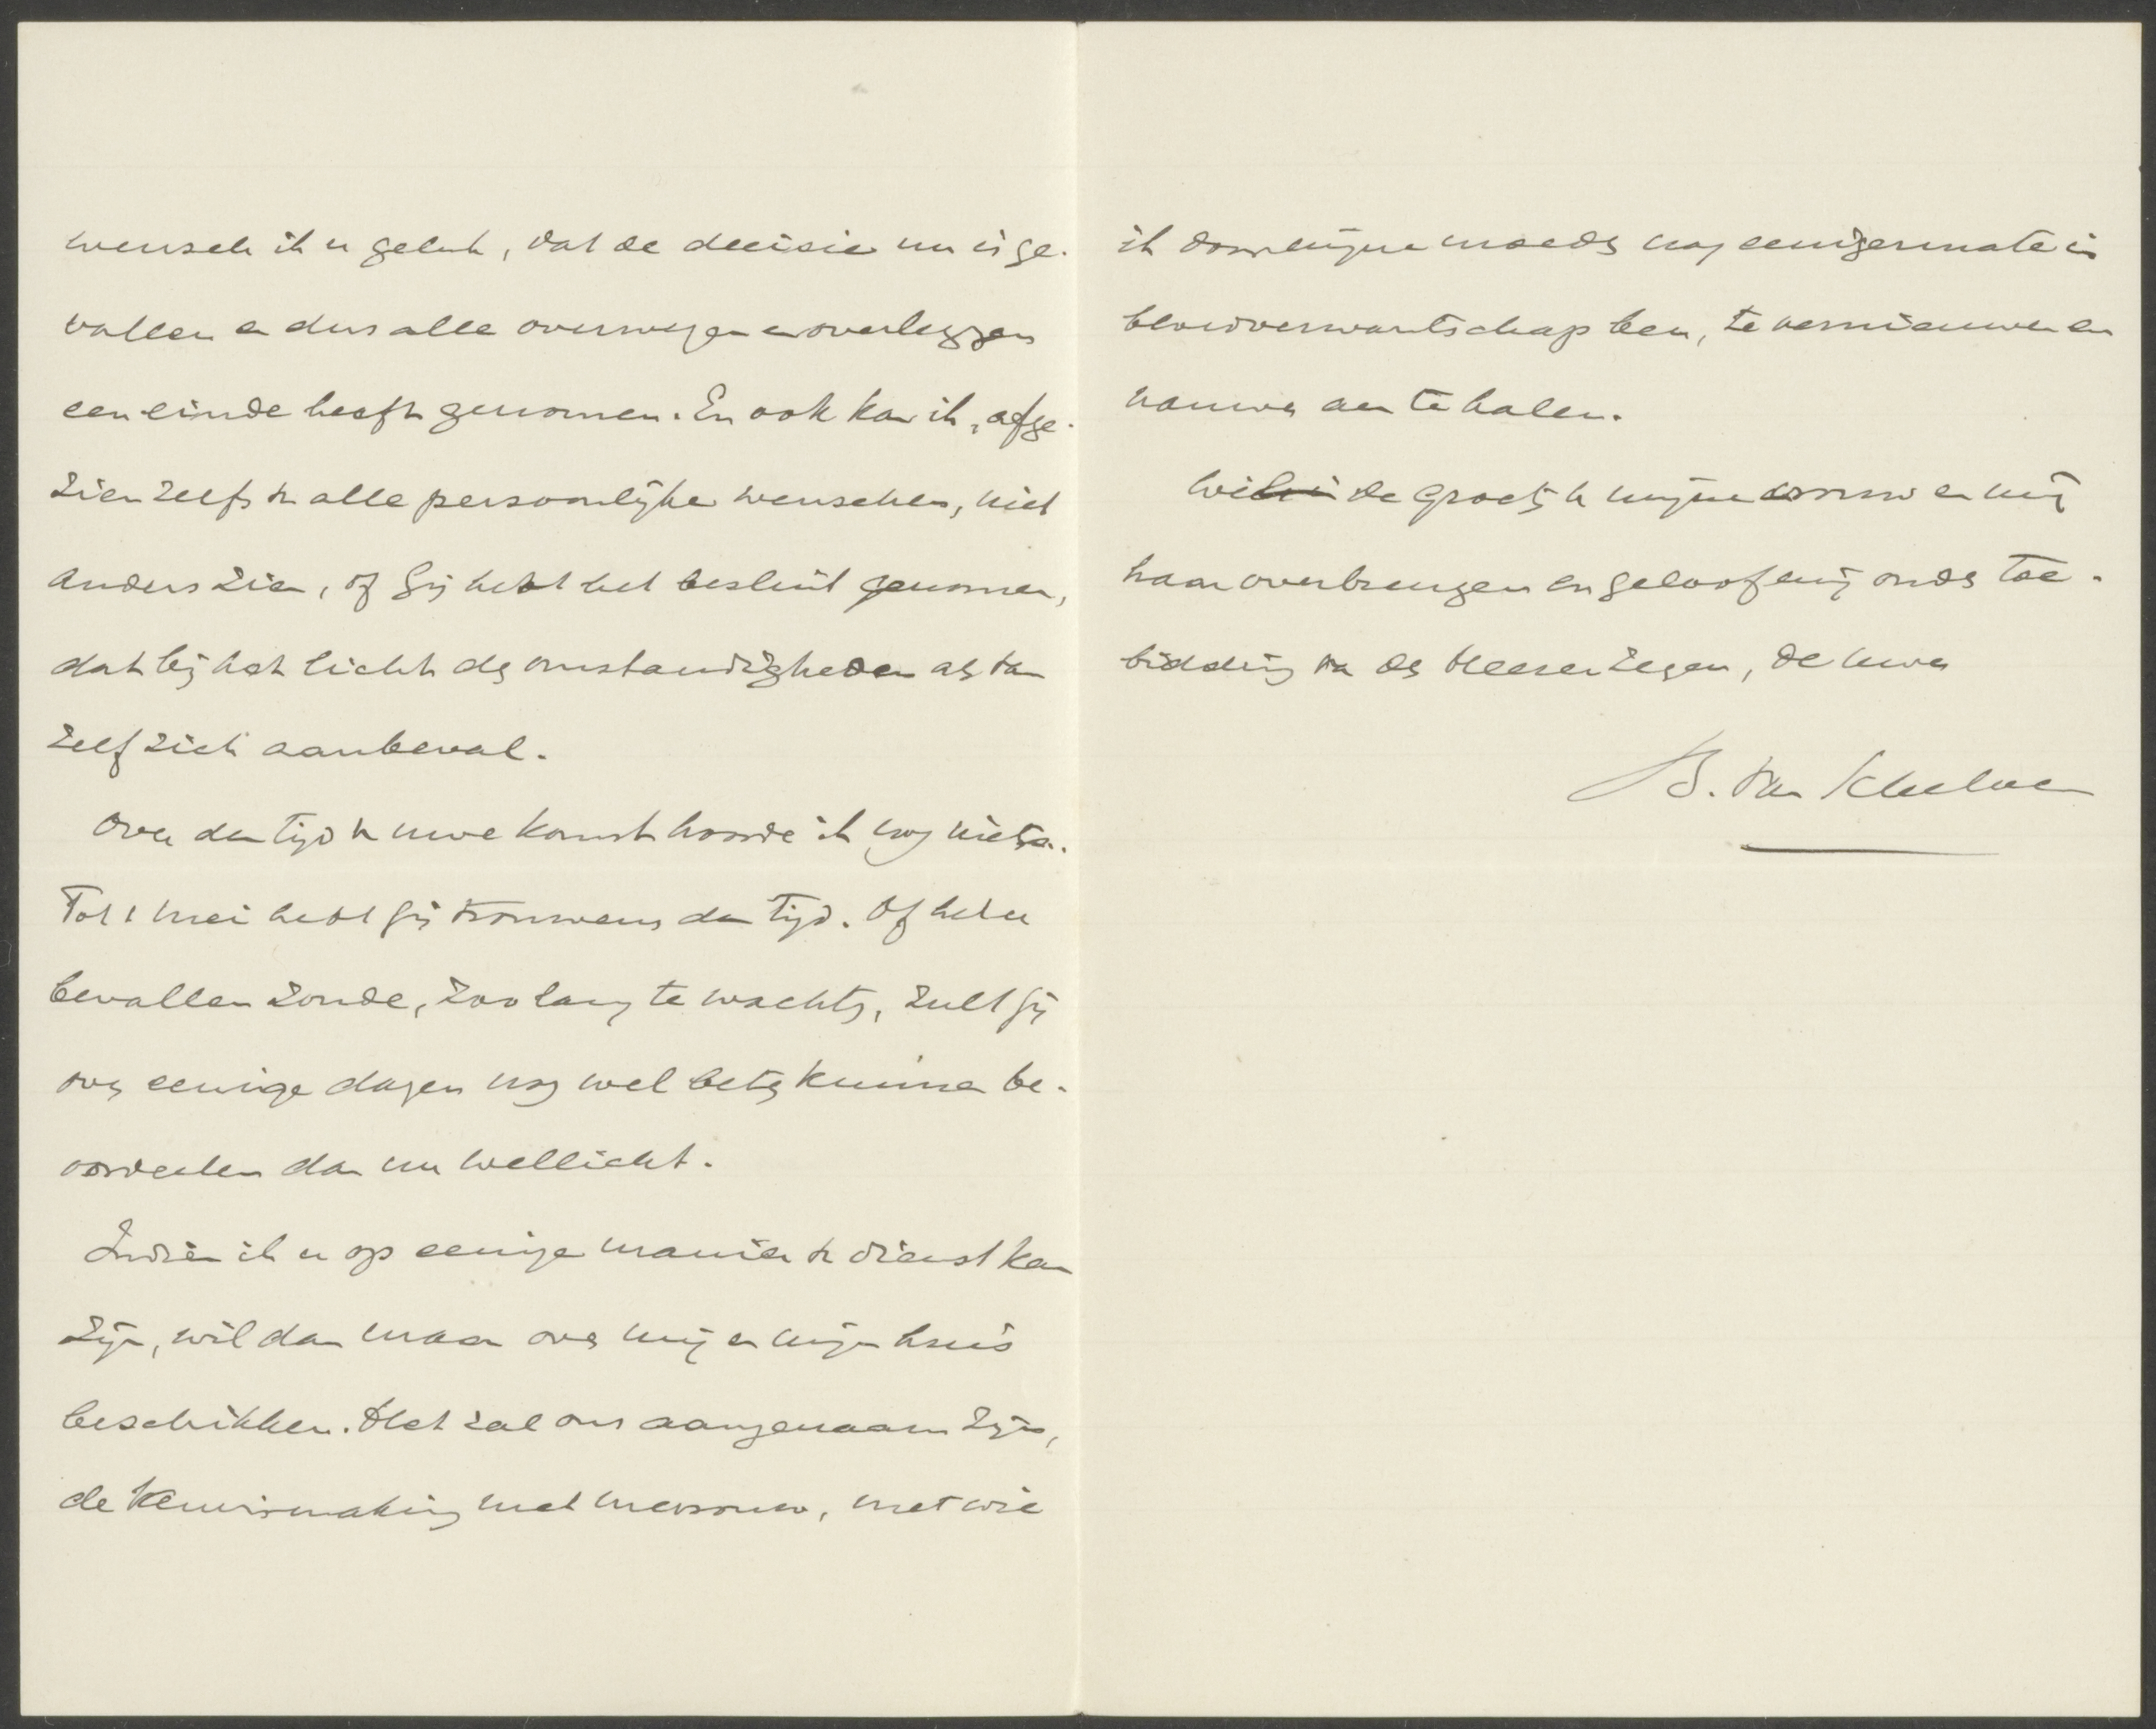 wensch ik u geluk, dat de decisie nu is ge-
vallen en dus alle overwegen en overleggen
een einde heeft genomen. En ook kan ik, afge-
zien zelfs v. alle persoonlijke wenschen, niet
anders zien, of gij hebt het besluit genomen,
dat bij het licht der omstandigheden als van
zelf zich aanbeval.
Over den tijd v. uwe komst hoorde ik nog niets.
Tot 1 Mei hebt gij trouwens den tijd. Of het u
bevallen zoude, zoo lang te wachten, zult gij
over eenige dagen nog wel beter kunnen be-
oordeelen dan nu wellicht.
Indien ik u op eenige manier v. dienst kan
zijn, wil dan maar over mij en mijn huis
beschikken. Het zal ons aangenaam zijn,
de kennismaking met mevrouw, met wie
ik door mijne moeder nog eenigermate in
bloedverwantschap ben, te vernieuwen en
nauwer aan te halen.
Wil de groeten v. mijne vrouw en mij
haar overbrengen en geloof mij onder toe-
bidding van des Heeren zegen, de uwe
B. van Schelven